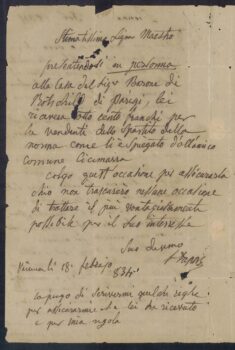 Stimatissimo Sigr Maestro
presentandosi in persona
alla casa del Sigr Barone di
Rothschild di Parigi, lei
riceverà otto cento franchi per
la vendita dello Spartito della
norma come le à spiegato dall'amico
comune Cicimarra
Colgo quest'occasione per assicurarla
ch'io non trascurerò nessuna occasione
di trattare il più vantaggiosamente
possibile per il suo interesse
Suo
Vienna li 18 febrajo 834
la prego di scrivermi qualche righe
per assicurarme che lei ha ricevuto
e per mia regola